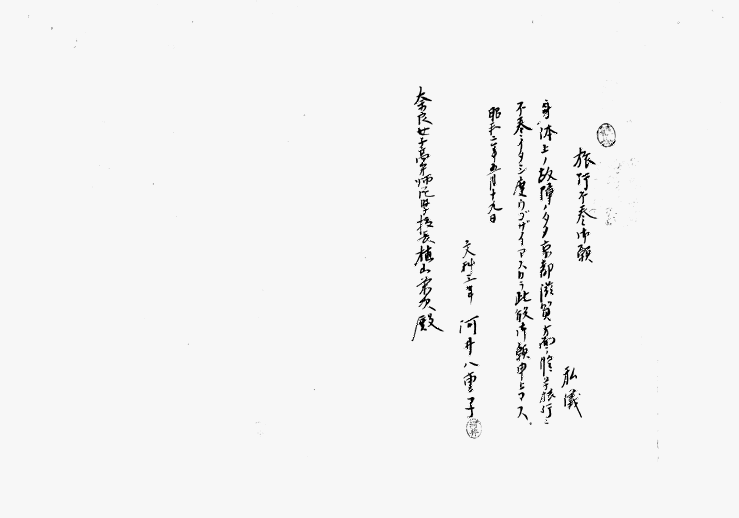 旅行不参御願
私儀
身体上ノ故障ノタメ京都滋賀方面修学旅行ニ
不参イタシ度ウゴザイマスカラ此段御願申上マス、
昭和二年五月十九日
文科三年 河井八重子
奈良女子高等師範学校長槇山栄次殿